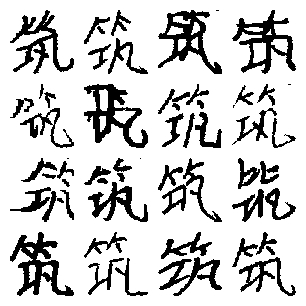 筑筑筑筑
筑筑筑筑
筑筑筑筑
筑筑筑筑